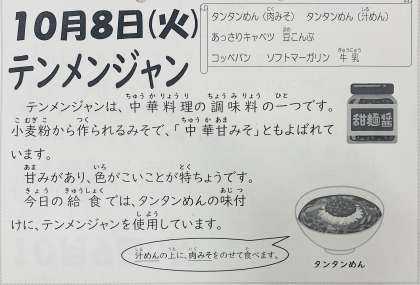 10月8日(火)
テンメンジャン
タンタンめん(肉みそ) タンタンめん(汁めん)
あっさりキャベツ 豆こんぶ
コッペパン ソフトマーガリン 牛乳
テンメンジャンは、中華料理の調味料の一つです。
小麦粉から作られるみそで、「中華甘みそ」ともよばれて
います。
甘みがあり、色がこいことが特ちょうです。
今日の給食では、タンタンめんの味付
けに、テンメンジャンを使用しています。
甜麺醤
汁めんの上に、肉みそをのせて食べます。
タンタンめん